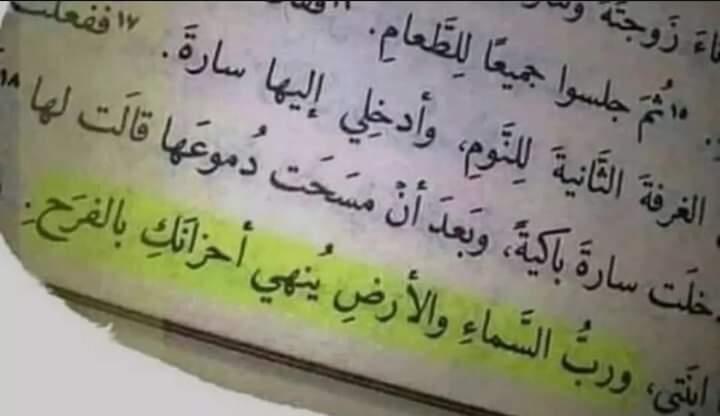 زَوجتَهُ
١٥ ثُمَّ جلسوا جميعًا لِلطَّعامِ. ١٧ ففعلَت
الغرفةَ الثَّانيةَ لِلنَّومِ، وأدخِلي إليها سارةَ.
سارةَ باكيةً، وبَعدَ أنْ مسَحَت دُموعَها قالَت لها ١٨
ابنَتي، وربُّ السَّماءِ والأرضِ يُنهي أحزانَكِ بالفرَحِ.